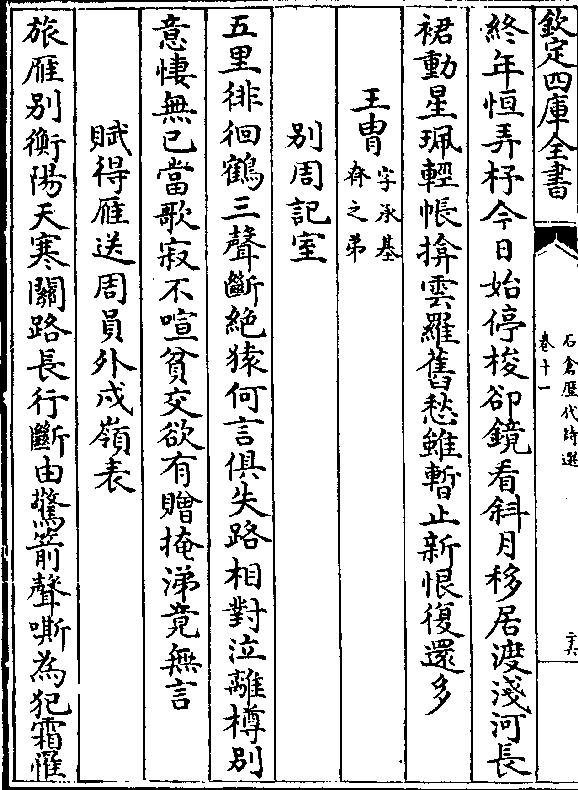 欽定四庫全書
石倉歷代詩選
卷十一
終年恒弄杼今日始停梭卻鏡看斜月移居渡淺河長
裙動星珮輕帳掩雲羅舊愁雖暫止新恨復還多
王胄
字承基
𦕈之弟
別周記室
五里徘徊鶴三聲斷絶猿何言俱失路相對泣離樽別
意悽無已當歌寂不喧貧交欲有贈掩涕竟無言
賦得雁送周員外戍嶺表
旅雁別衡陽天寒關路長行斷由驚箭聲嘶為犯霜罹